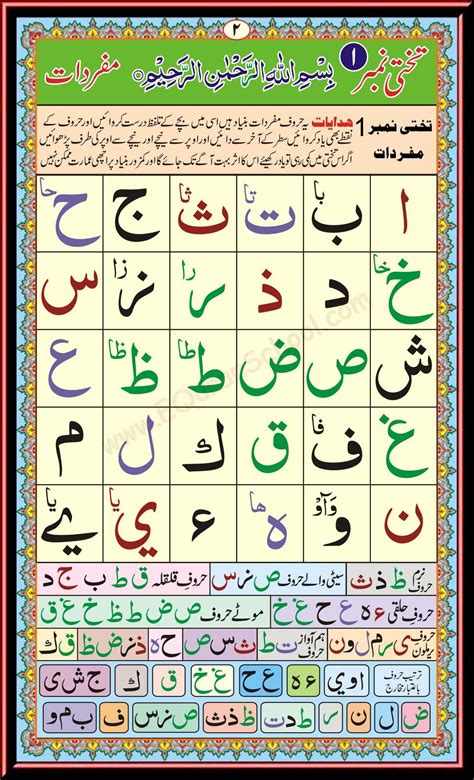 ۲
تختی نمبر ۱ بِسْمِ اللهِ الرَّحْمٰنِ الرَّحِيْمِ مفردات
تختی نمبر 1 مفردات
هدایات یہ حروف مفردات بنیاد ہیں اسی میں بچے کے تلفظ درست کروائیں اور حروف کے
نقطے بھی یاد کروائیں سطر کے آخر سے دائیں اور نیچے سے اوپر کی طرف پڑھوائیں
اگر اس تختی میں کمی رہی تو یاد رکھیئے اس کا اثر بہت آگے تک جائے گا اور کمزور بنیاد پر اچھی عمارت ممکن نہیں
ا ب با ت تا ث ثا ج ح حا
خ خا د ذ ر را ز زا س
ش ص ض ط طا ظ ظا ع
غ ف فا ق ك ل م
ن و واؤ ه ها ء ي يا ے يا
www.EQuranSchool.com
نرم حروف ظ ذ ث سیٹی والے حروف ص ز س حروف قلقلہ ق ط ب ج د
حروف حلقی ء ه ع ح غ خ موٹے حروف خ ص ض ط ظ غ ق
حروف یرملون ی ر م ل و ن ہم آواز حروف ت ط ث س ص ح ه ذ ز ض ظ ق ك
ترتیب حروف باعتبار مخارج ا و ي ء ه ع ح غ خ ق ك ج ش ی
ض ل ن ر ت د ط ظ ذ ث ص ز س ف ب م و